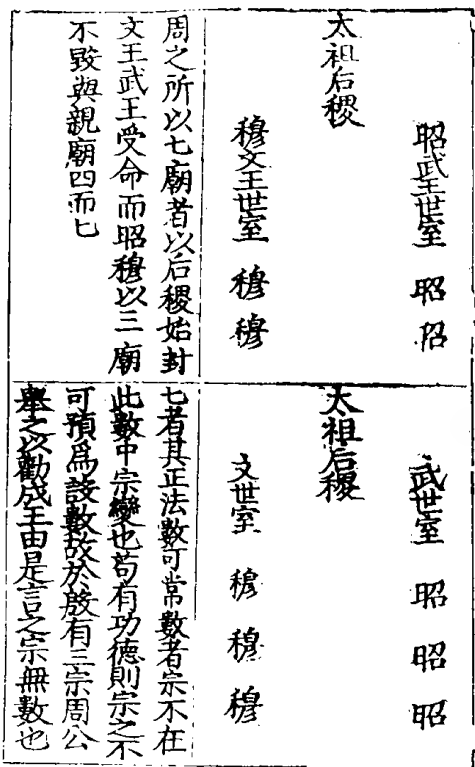 昭武王世室　昭　昭
太祖后稷
穆文王世室　穆　穆
周之所以七廟者以后稷始封
文王武王受命而昭穆以三廟
不毀與親廟四而七
武世室　昭　昭　昭
太祖后稷
文世室　穆　穆　穆
七者其正法數可常數者宗不在
此數中宗變也茍有功德則宗之不
可預為設數故於殷有三宗周公
舉之以勸成王由是言之宗無數也